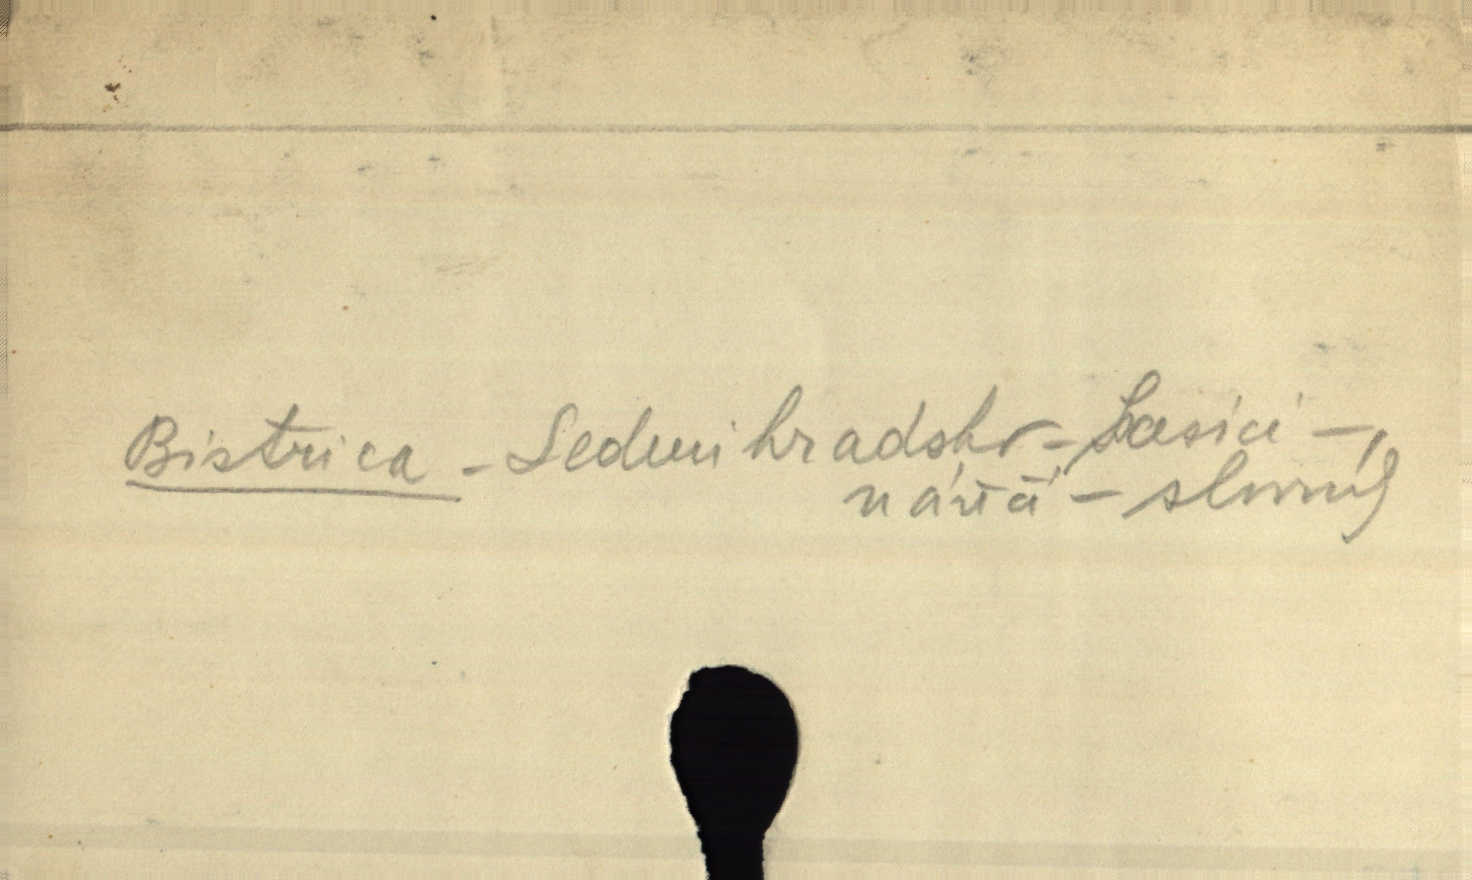 Bistrica - Sedmihradsko - Sasici -
nářečí - slovník